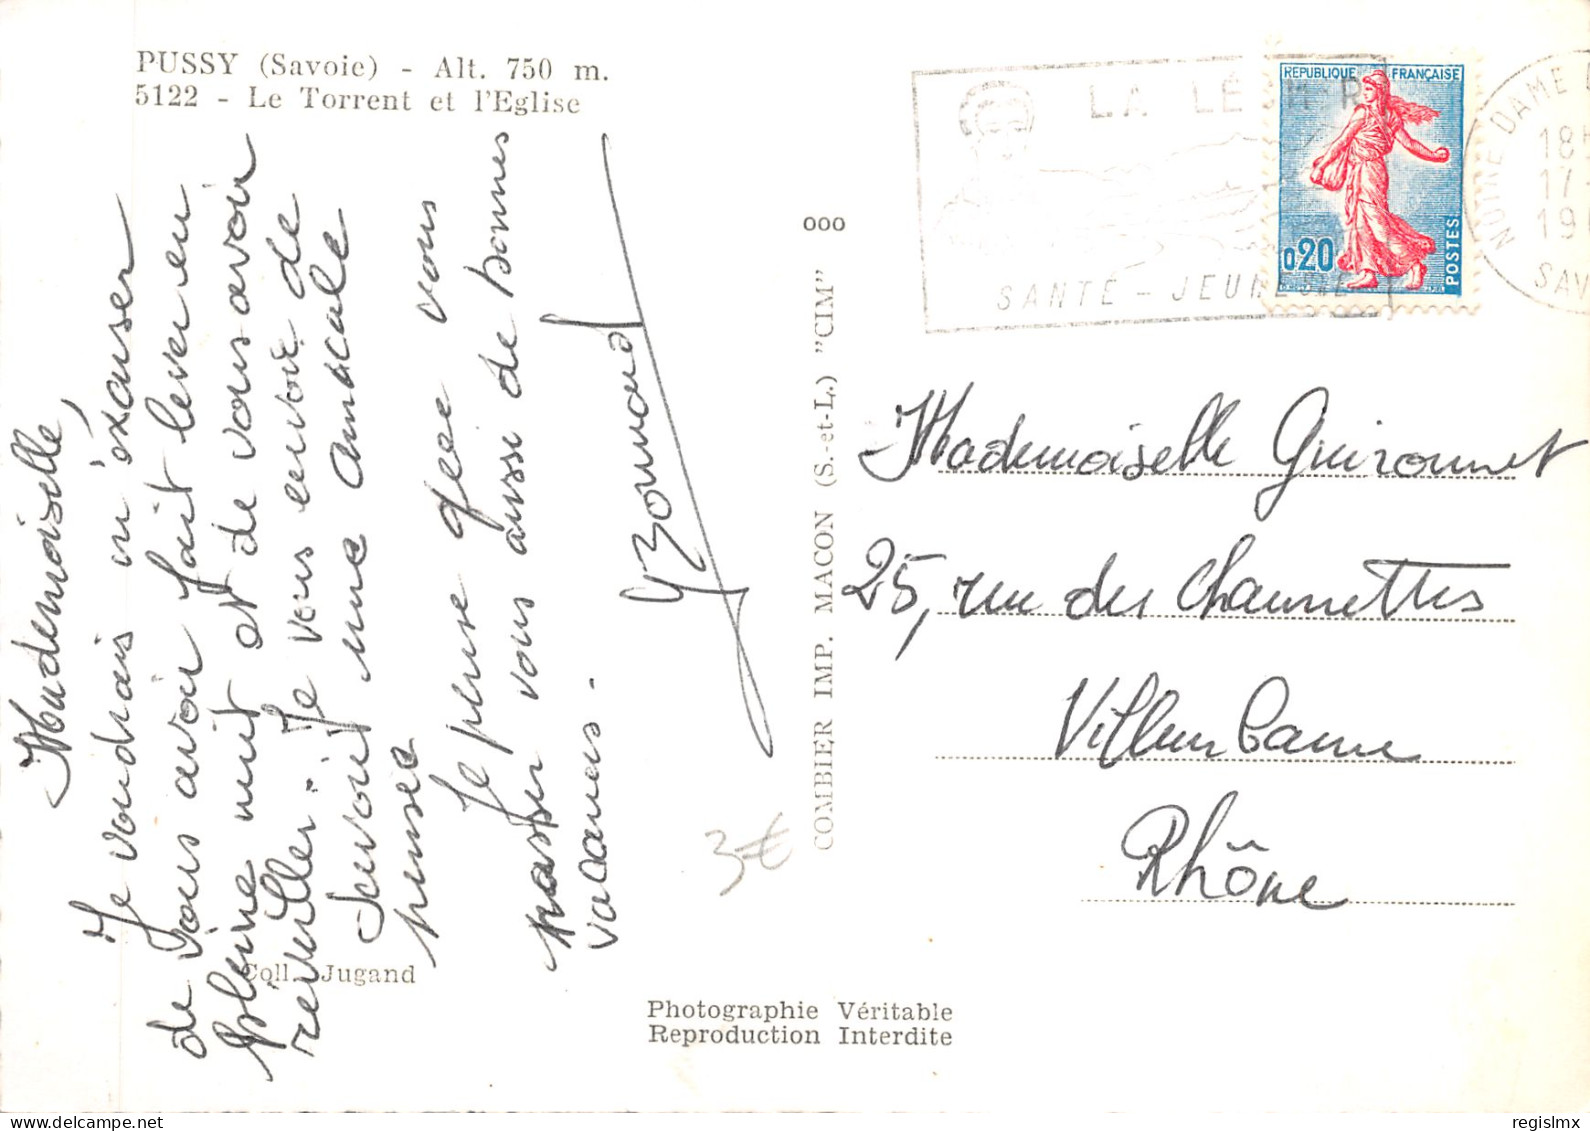 PUSSY (Savoie) - Alt. 750 m.
5122 - Le Torrent et l'Eglise
Mademoiselle,
Je voudrais m'éxcuser
de vous avoir fait lever en
pleine nuit et de vous avoir
réveiller. Je vous envoie de
savoie une amicale
pensée
Je pense que vous
passer vous aussi de bonnes
vacances.
Y Bonnard
Coll. Jugand
3€
COMBIER IMP. MACON (S.-et-L.) "CIM"
Photographie Véritable
Reproduction Interdite
ooo
LA LÉ
SANTE - JEUNESSE
REPUBLIQUE FRANÇAISE
0,20
POSTES
NOTRE DAME
18
17
19
SAV
Mademoiselle Guironnet
25, rue des Charmettes
Villeurbanne
Rhône
www.delcampe.net
regislmx